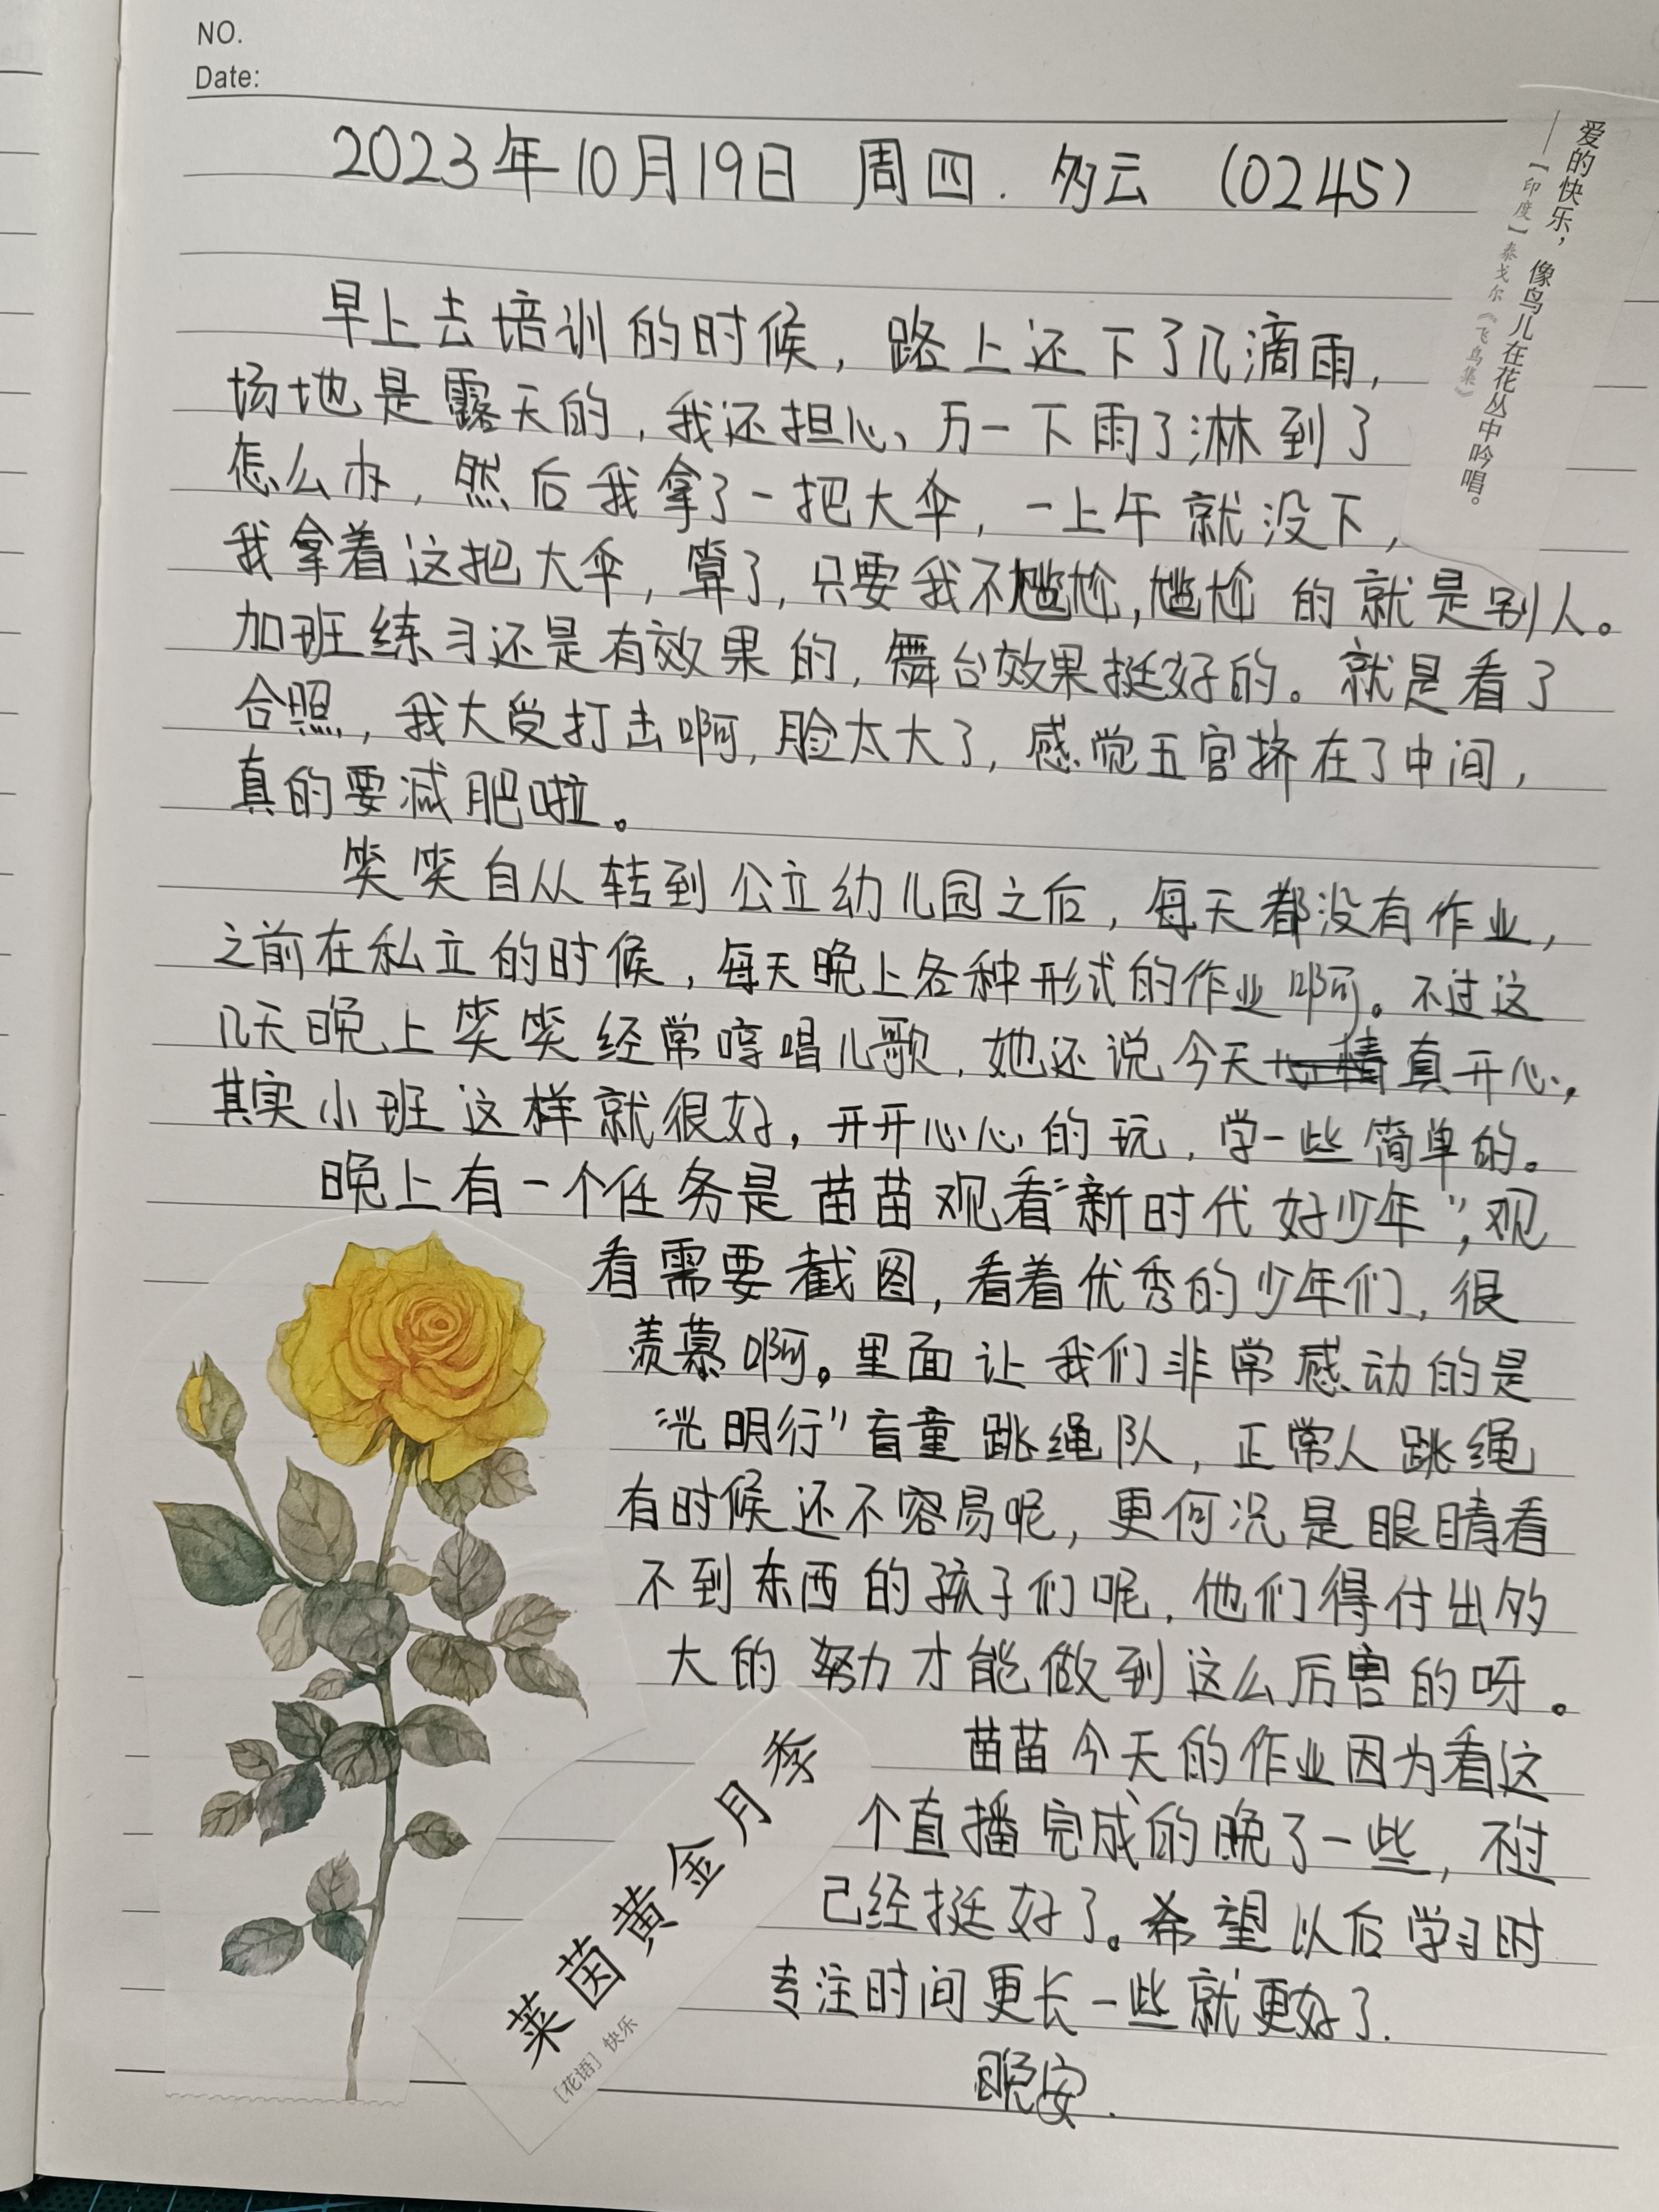 NO.
Date:
2023年10月19日 周四. 多云 (0245)
爱的快乐，像鸟儿在花丛中吟唱。
——【印度】泰戈尔《飞鸟集》
早上去培训的时候，路上还下了几滴雨，
场地是露天的，我还担心、万一下雨了淋到了
怎么办，然后我拿了一把大伞，一上午就没下，
我拿着这把大伞，算了，只要我不尴尬，尴尬的就是别人。
加班练习还是有效果的，舞台效果挺好的。就是看了
合照，我大受打击啊，脸太大了，感觉五官挤在了中间，
真的要减肥啦。
笑笑自从转到公立幼儿园之后，每天都没有作业，
之前在私立的时候，每天晚上各种形式的作业啊。不过这
几天晚上笑笑经常哼唱儿歌，她还说今天真开心，
其实小班这样就很好，开开心心的玩，学一些简单的。
晚上有一个任务是苗苗观看“新时代好少年”，观
看需要截图，看着优秀的少年们，很
羡慕啊。里面让我们非常感动的是
“光明行”盲童跳绳队，正常人跳绳
有时候还不容易呢，更何况是眼睛看
不到东西的孩子们呢，他们得付出多
大的努力才能做到这么厉害的呀。
苗苗今天的作业因为看这
个直播完成的晚了一些，不过
已经挺好了。希望以后学习时
专注时间更长一些就更好了.
晚安.
莱茵黄金月季
［花语］快乐